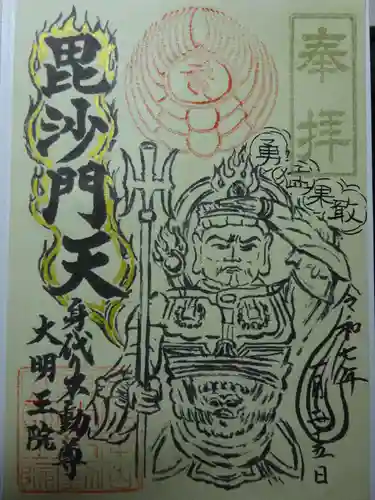 奉拝
勇猛果敢
令和七年
一月二十五日
毘沙門天
身代不動尊
大明王院